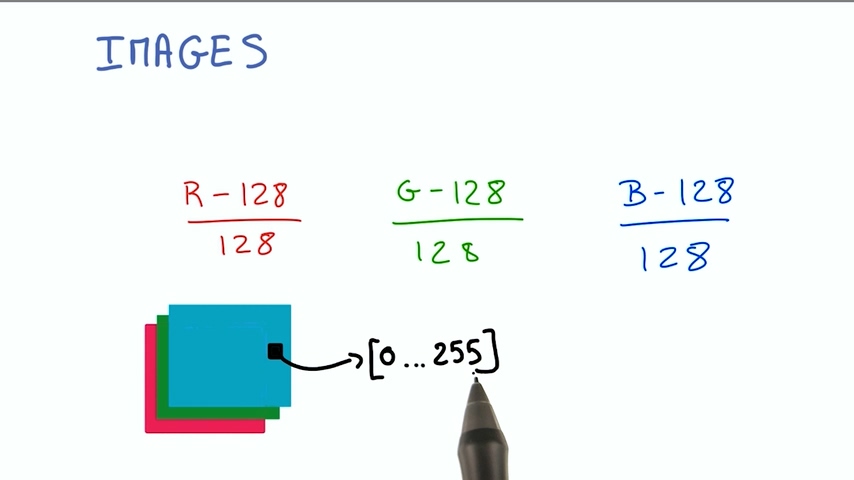 IMAGES
R - 128 G - 128 B - 128
128 128 128
[0...255]